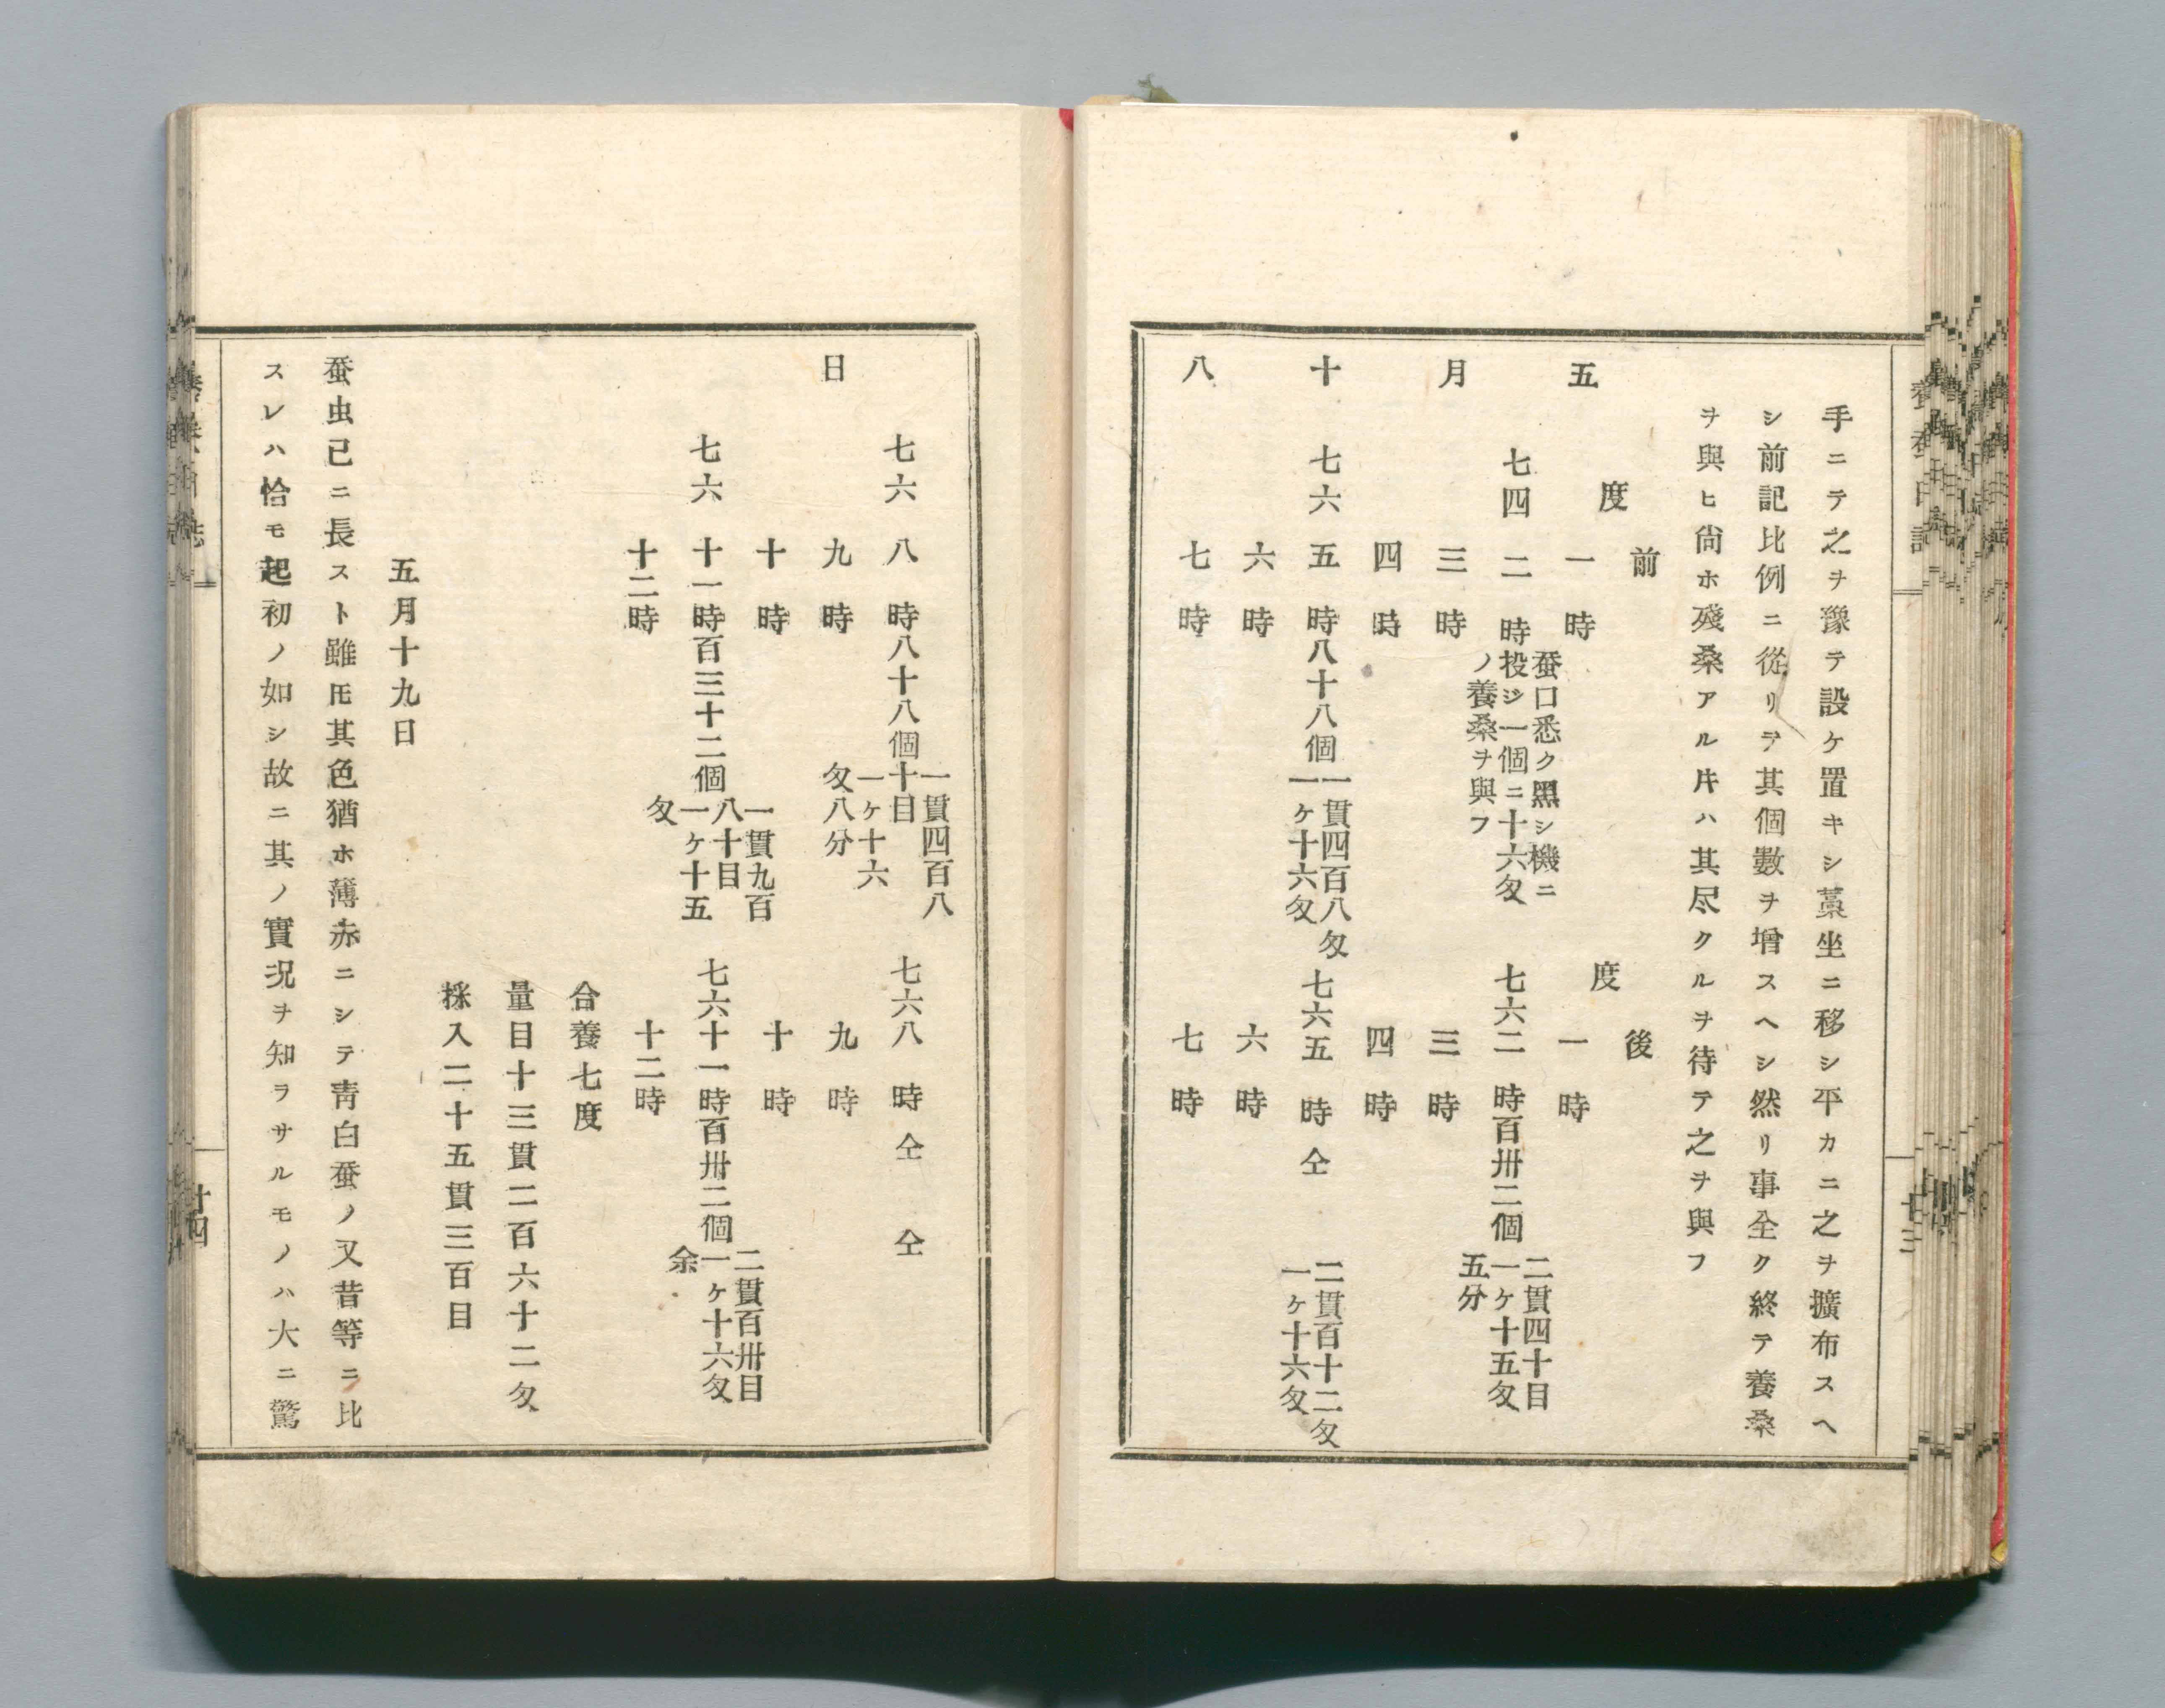 手ニテ之ヲ豫テ設ケ置キシ藁坐ニ移シ平カニ之ヲ擴布スヘ
シ前記比例ニ從リテ其個數ヲ增スヘシ然リ事全ク終テ養桑
ヲ與ヒ尙ホ殘桑アル片ハ其尽クルヲ待テ之ヲ與フ
前 後
五 度 度
一時 一時
七四 二時 蚕口悉ク黑シ機ニ
投ジ一個ニ十六匁
ノ養桑ヲ與フ
七六 二時百卅二個 二貫四十目
一ケ十五匁
五分
月 三時 三時
四時 四時
十 七六 五時八十八個 一貫四百八匁
一ケ十六匁
七六 五時仝 二貫百十二匁
一ケ十六匁
六時 六時
八 七時 七時
十三
七六 八時八十八個 一貫四百八
十目
一ケ十六
匁八分
七六 八時仝 仝
日 九時 九時
十時 十時
七六 十一時百三十二個 一貫九百
八十目
一ケ十五
匁
七六 十一時百卅二個 二貫百卅目
一ケ十六匁
余
十二時 十二時
合養七度
量目十三貫二百六十二匁
採入二十五貫三百目
五月十九日
蚕虫已ニ長スト雖𪜈其色猶ホ薄赤ニシテ靑白蚕ノ又昔等ニ比
スレハ恰モ起初ノ如シ故ニ其ノ實況ヲ知ラサルモノハ大ニ驚
十四